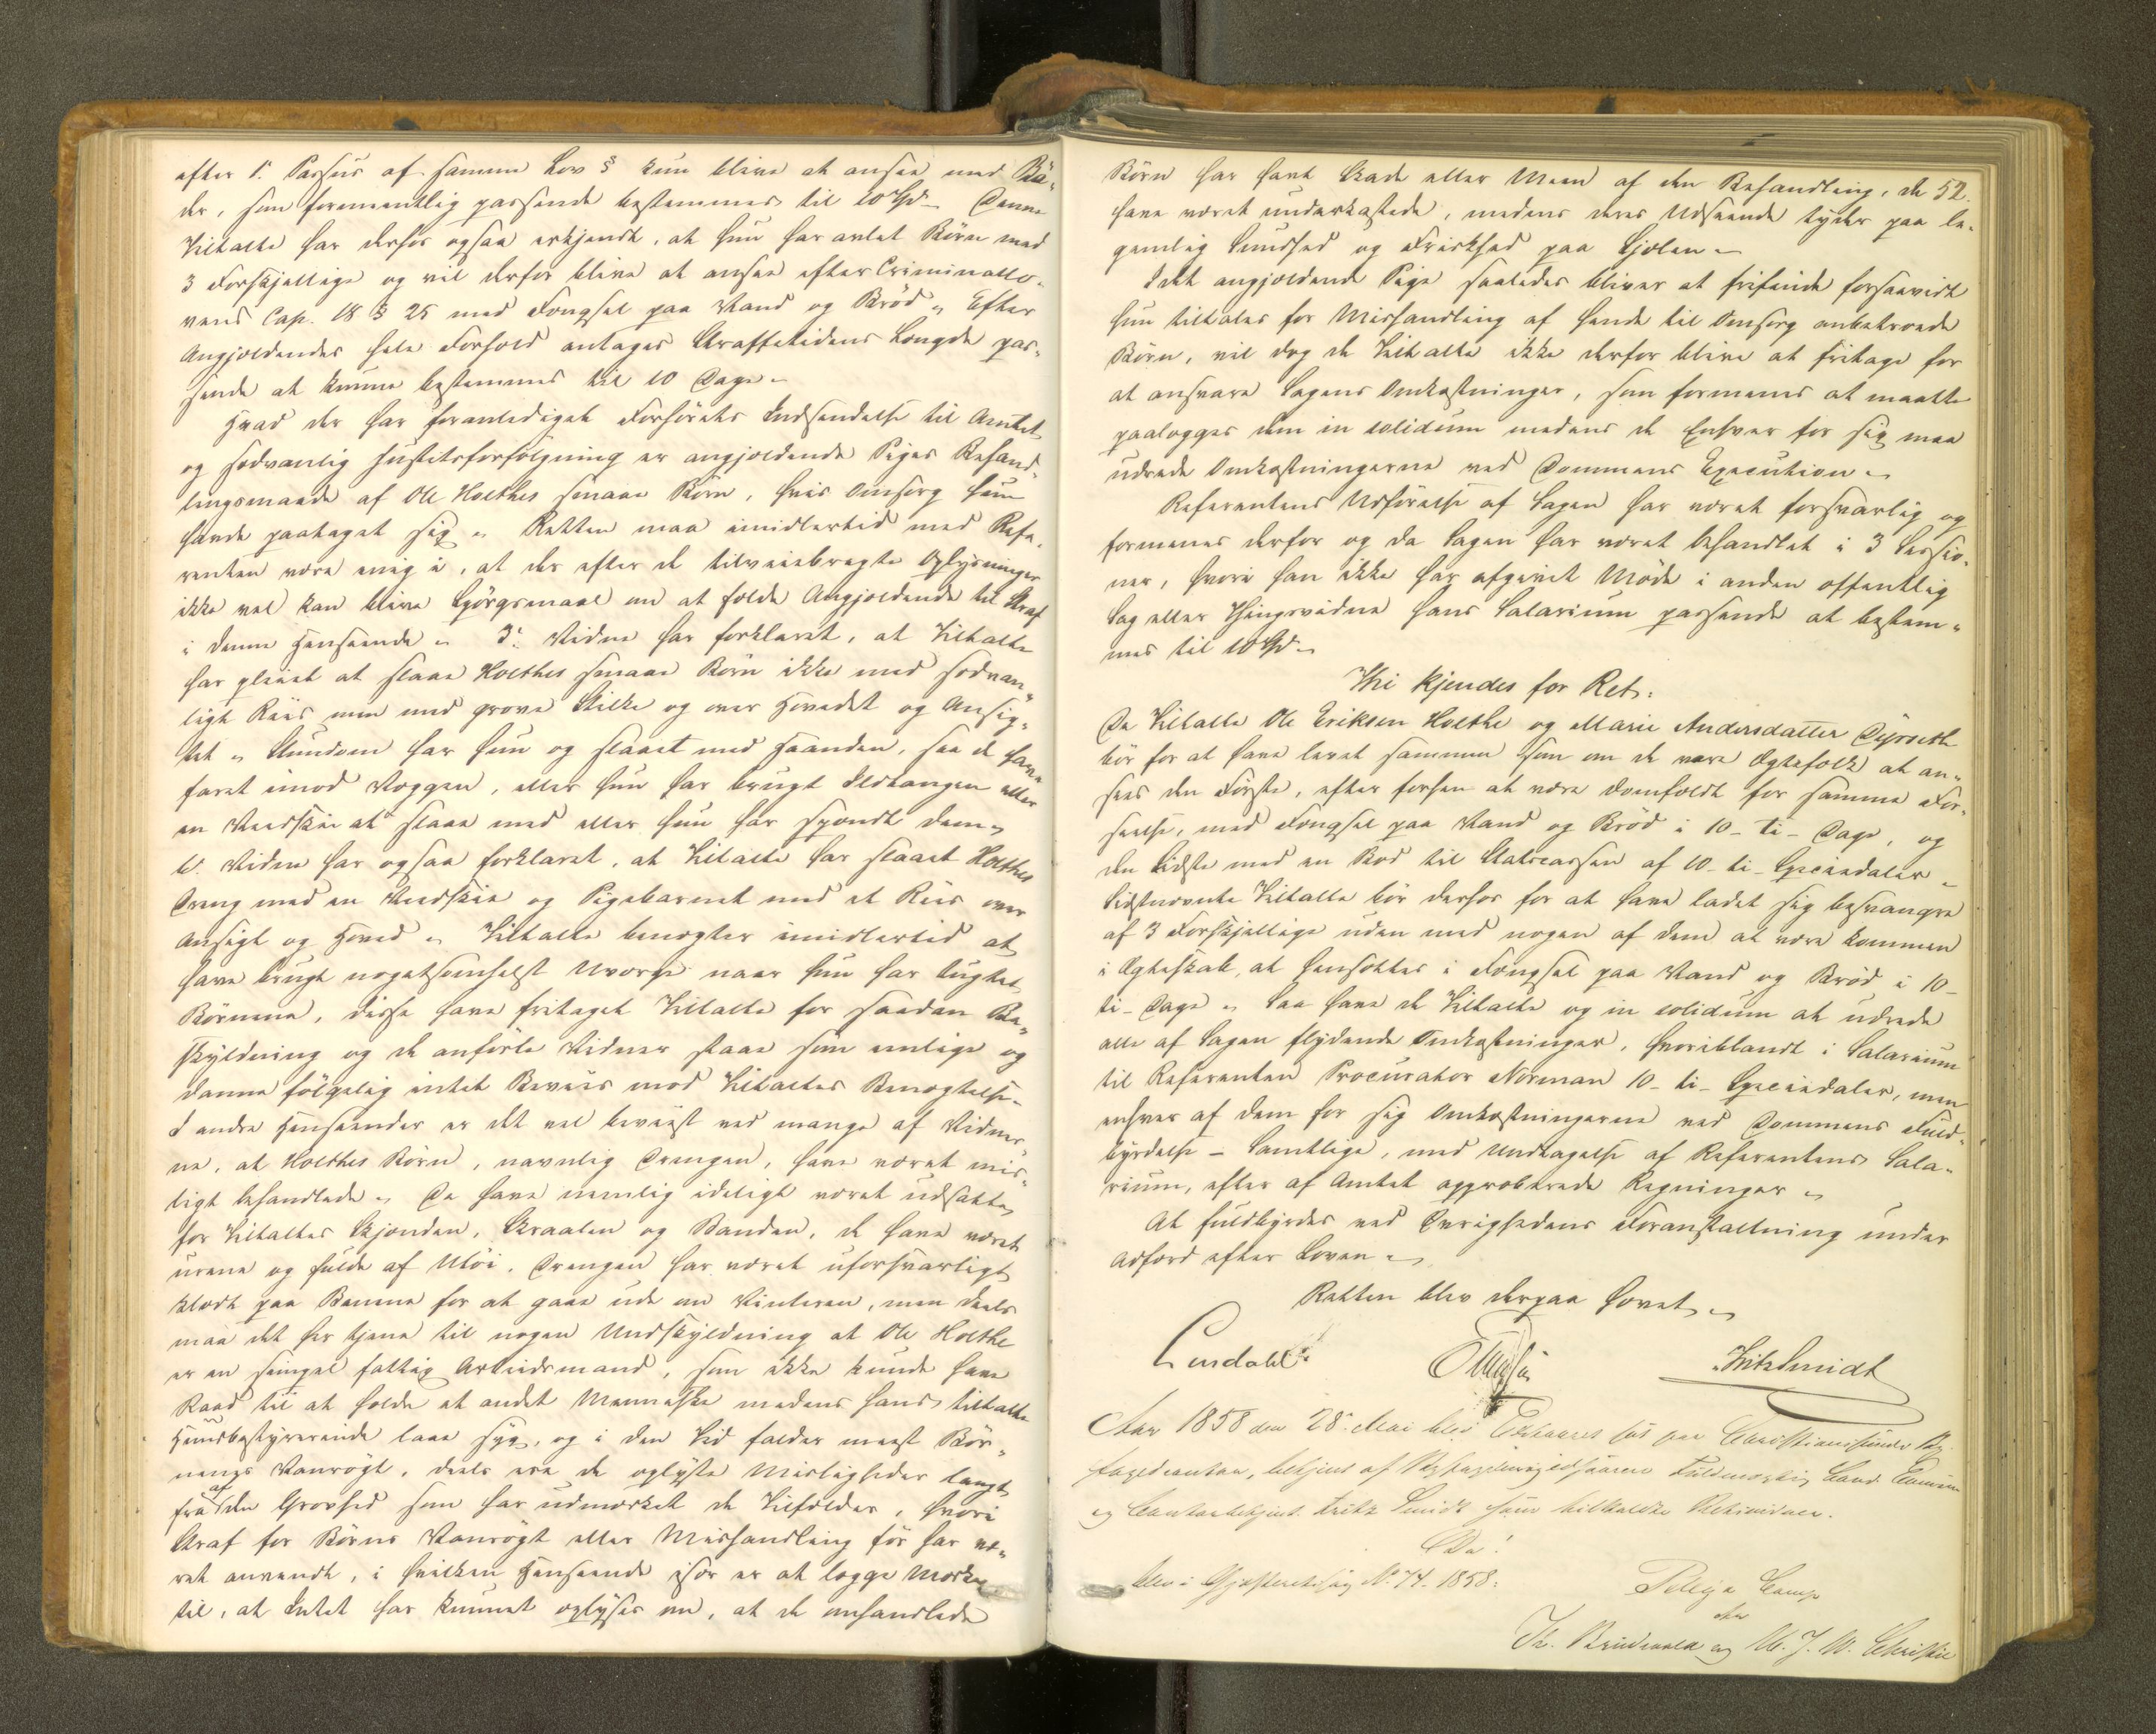 efter 1. Passus af samme Lov § kun blive at ansee med Bö-
der, som formeentlig passende bestemmes til 10 Spd. Denne
Tiltalte har derhos ogsaa erkjendt, at hun har avlet Börn med
3 Forskjellige og vil derfor blive at ansee efter Criminallo-
vens Cap. 18 § 25 med Fængsel paa Vand og Bröd. Efter
Angjeldendes hele Forhold antages Straffetidens Længde pas-
sende at kunne bestemmes til 10 Dage.
Hvad der har foranlediget Forhörets Indsendelse til Amtet
og sædvanlig Justitsforfölgning er angjeldende Piges Behand-
lingsmaade af Ole Holthes smaae Börn, hvis Omsorg hun
havde paataget sig. Retten maa imidlertid med Refe-
renten være enig i, at der efter de tilveiebragte Oplysninger
ikke vel kan blive Spörgsmaal om at fælde Angjeldende til Straf
i denne Henseende. 3. Vidne har forklaret, at Tiltalte
har pleiet at slaae Holthes smaae Börn ikke med sædvan-
ligt Riis men med grove Stilke og over Hovedet og Ansig-
tet. Stundom har hun og slaaet med Haanden, saa de have
faret imod Væggen, eller hun har brugt Ildtangen eller
en Veedskie at slaae med eller hun har spændt dem.
6. Vidne har ogsaa forklaret, at Tiltalte har slaaet Holthes
Dreng med en Veedskie og Pigebarnet med et Riis over
Ansigt og Hoved. Tiltalte benægter imidlertid at
have brugt nogetsomhelst Uvorse naar hun har tugtet
Börnene, disse have fritaget Tiltalte for saadan Be-
skyldning og de anförte Vidner staae som enlige og
danne fölgelig intet Beviis mod Tiltaltes Benægtelse.
I andre Henseender er det vel beviist ved mange af Vidner-
ne, at Holthes Börn, navnlig Drengen, have været mis-
ligt behandlede. De have nemlig ideligt været udsatte
for Tiltaltes Skjenden, Skraalen og Banden, de have været
urene og fulde af Utöi. Drengen har været uforsvarligt
klædt paa Benene for at gaae ude om Vinteren, men deels
maa det her tjene til nogen Undskyldning at Ole Holthe
er en simpel fattig Arbeidsmand, som ikke kunde have
Raad til at holde et andet Menneske medens hans tiltalte
Huusbestyrerinde laae syg, og i den Tid falder meest Bör-
nenes Vanrögt, deels ere de oplyste Misligheder langt
fra af den Grovhed som har udmærket de Tilfælder, hvori
Straf for Börns Vanrögt eller Mishandling för har væ-
ret anvendt, i hvilken Henseende især er at lægge Mærke
til, at Intet har kunnet oplyses om, at de omhandlede
52.
Börn har havt Skade eller Meen af den Behandling, de
have været underkastede, medens deres Udseende tyder paa le-
gemlig Sundhed og Friskhed paa Sjelen.
Idet angjeldende Pige saaledes bliver at frifinde forsaavidt
hun tiltales for Mishandling af hende til Omsorg anbetroede
Börn, vil dog de Tiltalte ikke derfor blive at fritage for
at ansvare Sagens Omkostninger, som formenes at maatte
paalægges dem in solidum medens de Enhver for sig maa
udrede Omkostningerne ved Dommens Execution.
Referentens Udförelse af Sagen har været forsvarlig og
formenes derfor og da Sagen har været behandlet i 3 Sessio-
ner, hvori han ikke har afgivet Möde i anden offentlig
Sag eller Thingsvidne hans Salarium passende at bestem-
mes til 10 Spd.
Thi kjendes for Ret:
De Tiltalte Ole Eriksen Holthe og Marie Andersdatter Dyrseth
bör for at have levet sammen som om de vare Ægtefolk at an-
sees den Förste, efter forhen at være domfældt for samme For-
seelse, med Fængsel paa Vand og Bröd i 10 - ti - Dage, og
den Sidste med en Bod til Statscassen af 10 - ti - Speciedaler.
Sidstnævnte Tiltalte bör derhos for at have ladet sig besvangre
af 3 Forskjellige uden med nogen af dem at være kommen
i Ægteskab, at hensættes i Fængsel paa Vand og Bröd i 10 -
ti - Dage. Saa have de Tiltalte og in solidum at udrede
alle af Sagen flydende Omkostninger, hvoriblandt i Salarium
til Referenten Procurator Norman 10 - ti - Speciedaler, men
enhver af dem for sig Omkostningerne ved Dommens Fuld-
byrdelse - Samtlige, med Undtagelse af Referentens Sala-
rium, efter af Amtet approberede Regninger.
At fuldbyrdes ved Övrighedens Foranstaltning under
Adfærd efter Loven.
Retten blev derpaa hævet.
Lindahl
Fritz Smidt
Aar 1858 den 28. Mai blev Extraret sat paa Christianssunds By-
fogedcontor, betjent af Byfogdens
og Contorbetjent Fritz Smidt som tilkaldte Retsvidner.
Da!
blev i Gjæsteretssag No. 74. 1858: